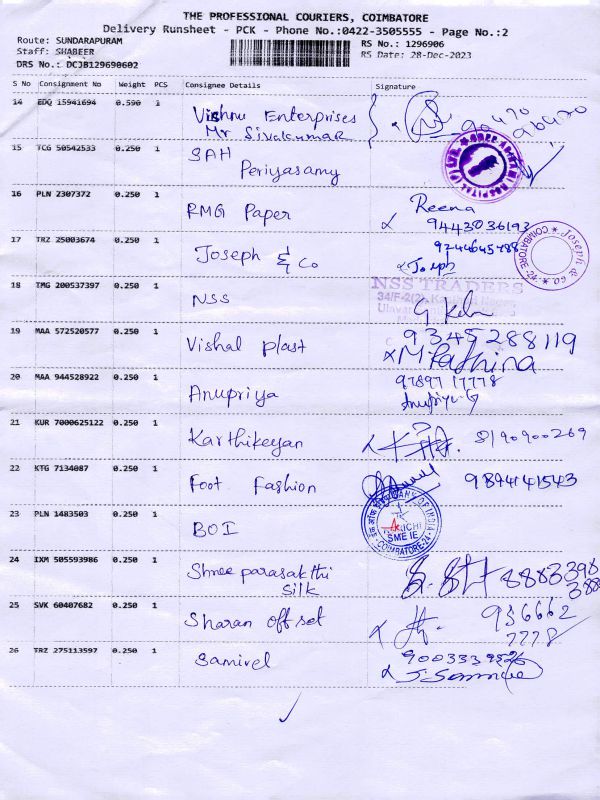 THE PROFESSIONAL COURIERS, COIMBATORE
Delivery Runsheet - PCK - Phone No.:0422-3505555 - Page No.:2
Route: SUNDARAPURAM
Staff: SHABEER
DRS No.: DCJB129690602
RS No.: 1296906
RS Date: 28-Dec-2023
S No Consignment No Weight PCS Consignee Details Signature
14 EDQ 15941694 0.590 1 Vishnu Enterprises
Mr Sivakumar
15 TCG 50542533 0.250 1 SAH
Periyasamy
16 PLN 2307372 0.250 1 RMG Paper Reena
9443036193
17 TRZ 25003674 0.250 1 Joseph & Co 9244645788
Joseph
Joseph & Co. COIMBATORE-24.
18 TMG 200537397 0.250 1 NSS
NSS TRADERS
34/F-2(2),
19 MAA 572520577 0.250 1 Vishal plast 9345288119
20 MAA 944528922 0.250 1 Anupriya 97897 17778
Anupriya.G
21 KUR 7000625122 0.250 1 Karthikeyan 8190900269
22 KTG 7134087 0.250 1 Foot Fashion 9894141543
23 PLN 1483503 0.250 1 BOI
BANK OF INDIA
SME IE
COIMBATORE-24
24 IXM 505593986 0.250 1 Shree parasakthi
Silk 8883398
25 SVK 60407682 0.250 1 Sharan offset 936662
7778
26 TRZ 275113597 0.250 1 Samivel